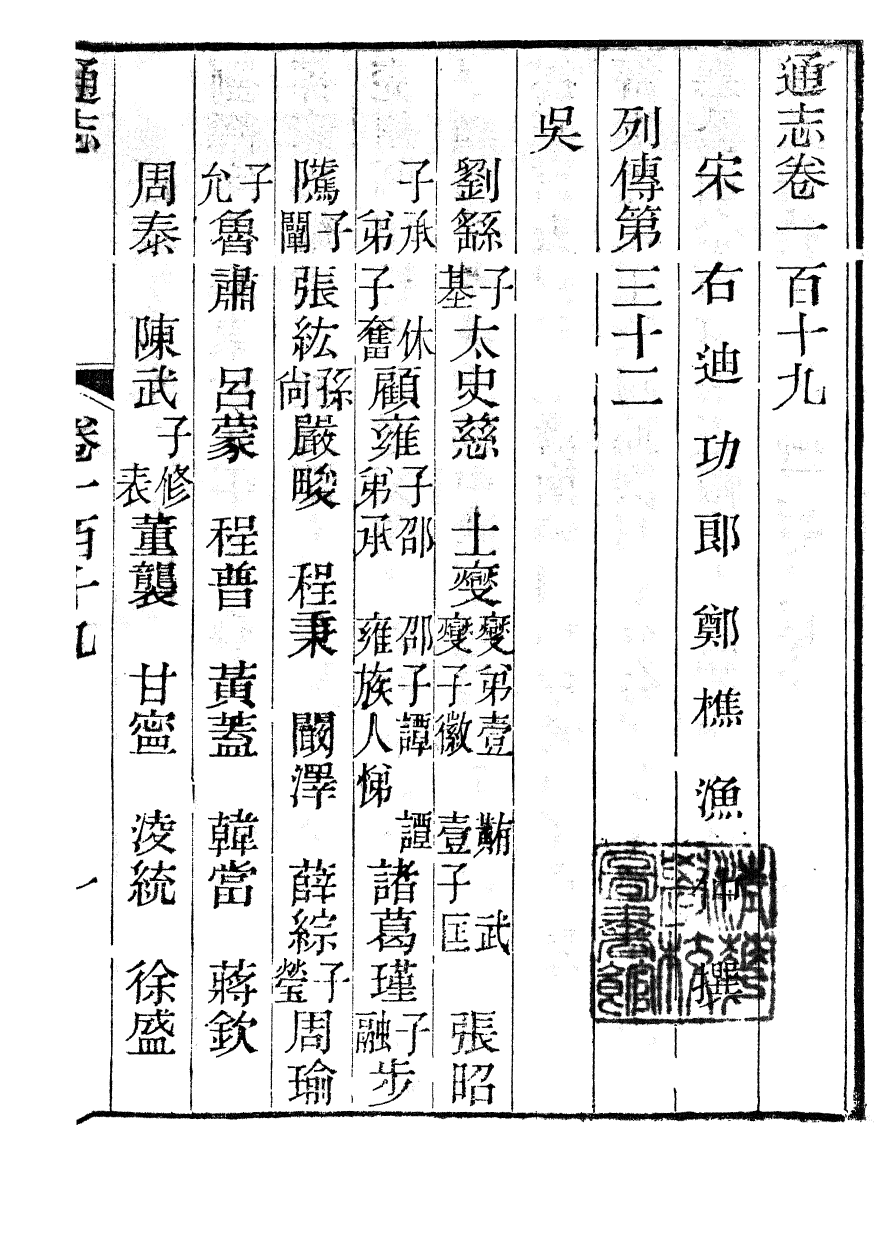 通志卷一百十九
宋右迪功郎鄭樵漁仲撰
列傳第三十二
吳
劉繇 子基 太史慈 士燮 燮弟壹 䵋 武 燮子徽 壹子匡 張昭
子承 休 弟子奮 顧雍 子邵 邵子譚 譚 弟承 雍族人悌 諸葛瑾 子融 步
隲 子闡 張紘 孫尚 嚴畯 程秉 闞澤 薛綜 子瑩 周瑜
子允 魯肅 呂蒙 程普 黃蓋 韓當 蔣欽
周泰 陳武 子修 表 董襲 甘甯 淩統 徐盛
通志 卷一百十九 一